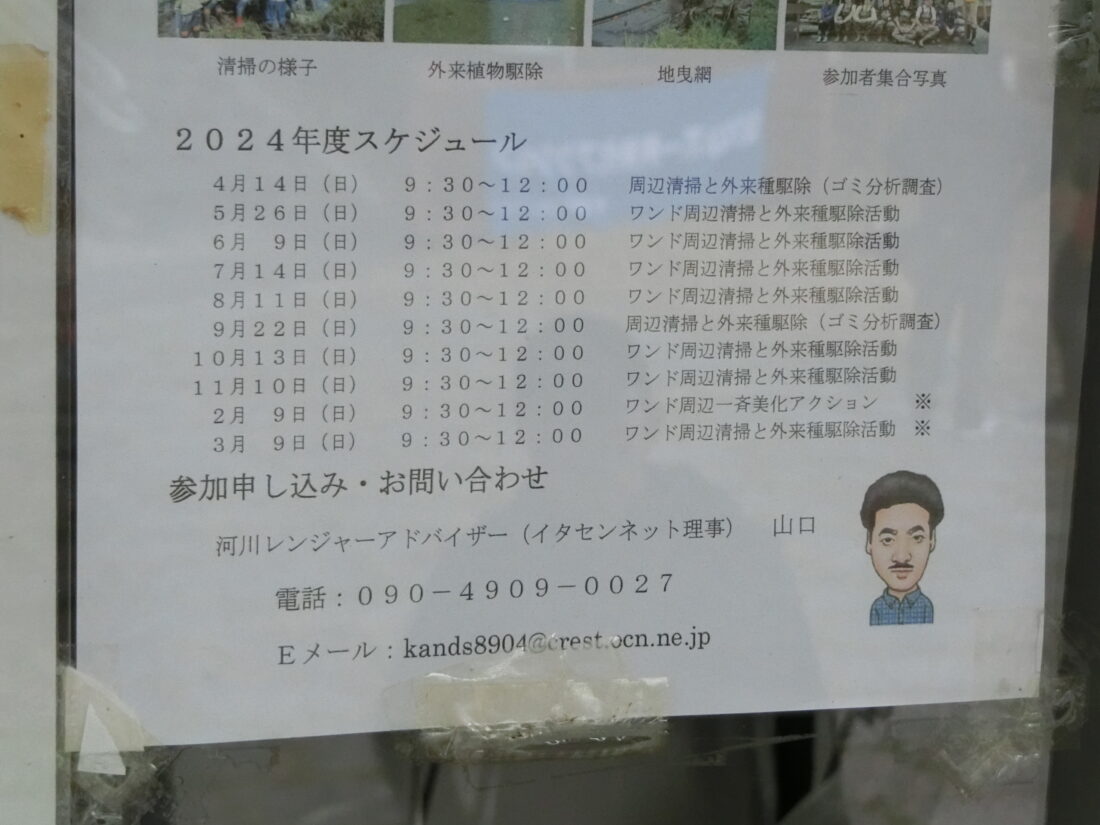 清掃の様子 外来植物駆除 地曳網 参加者集合写真
２０２４年度スケジュール
４月１４日（日） ９：３０～１２：００ 周辺清掃と外来種駆除（ゴミ分析調査）
５月２６日（日） ９：３０～１２：００ ワンド周辺清掃と外来種駆除活動
６月　９日（日） ９：３０～１２：００ ワンド周辺清掃と外来種駆除活動
７月１４日（日） ９：３０～１２：００ ワンド周辺清掃と外来種駆除活動
８月１１日（日） ９：３０～１２：００ ワンド周辺清掃と外来種駆除活動
９月２２日（日） ９：３０～１２：００ 周辺清掃と外来種駆除（ゴミ分析調査）
１０月１３日（日） ９：３０～１２：００ ワンド周辺清掃と外来種駆除活動
１１月１０日（日） ９：３０～１２：００ ワンド周辺清掃と外来種駆除活動
２月　９日（日） ９：３０～１２：００ ワンド周辺一斉美化アクション　※
３月　９日（日） ９：３０～１２：００ ワンド周辺清掃と外来種駆除活動　※
参加申し込み・お問い合わせ
河川レンジャーアドバイザー（イタセンネット理事）　山口
電話：０９０－４９０９－００２７
Ｅメール：kands8904@crest.ocn.ne.jp